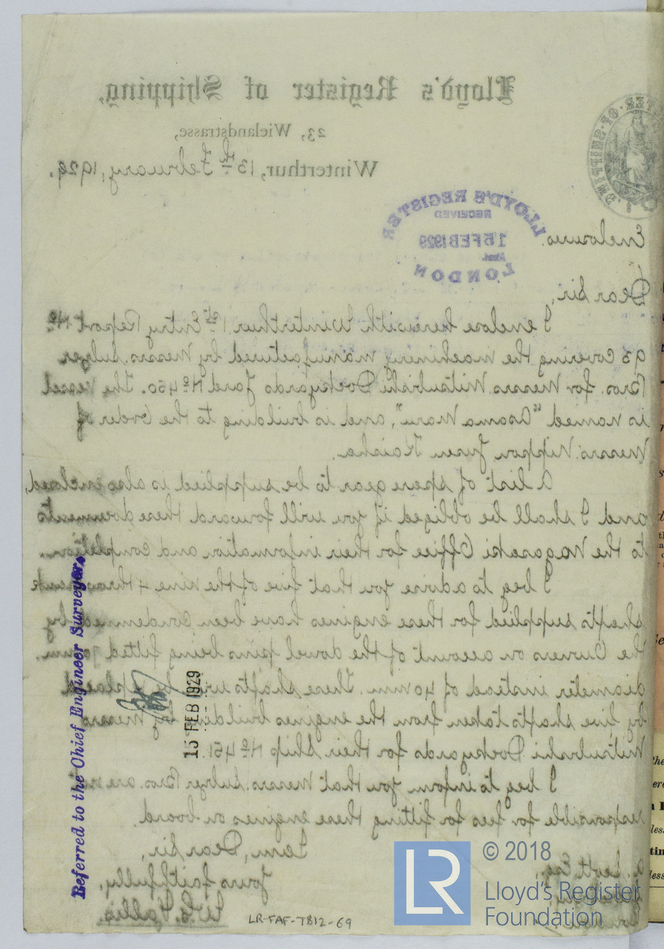 Lloyd's Register of Shipping,
23, Wielandstrasse,
Winterthur, 13th February, 1929.
LLOYD'S REGISTER
RECEIVED
15 FEB 1929
LONDON
Enclosures
Dear Sir,
I enclose herewith Winterthur 1st Entry Report No
93 covering the machinery manufactured by Messrs. Sulzer
Bros. for Messrs. Mitsubishi Dockyards Yard No 450. The vessel
is named "Asama Maru", and is building to the order of
Messrs. Nippon Yusen Kaisha.
A list of spare gear to be supplied is also enclosed,
and I shall be obliged if you will forward these documents
to the Nagasaki Office for their information and completion.
I beg to advise you that five of the nine 4 throw crank
shafts supplied for these engines have been condemned by
the Owners on account of the dowel pins being fitted
diameter instead of 40 mm. These shafts will be replaced
by five shafts taken from the engines building for Messrs
Mitsubishi Dockyards for their Ship No 451.
I beg to inform you that Messrs. Sulzer Bros. are not
responsible for fees for fitting these engines on board.
I am, Dear Sir,
Yours faithfully,
Scott Esq.
Referred to the Chief Engineer Surveyor.
15 FEB 1929
LR-FAF-7812-69
LR
© 2018
Lloyd's Register
Foundation